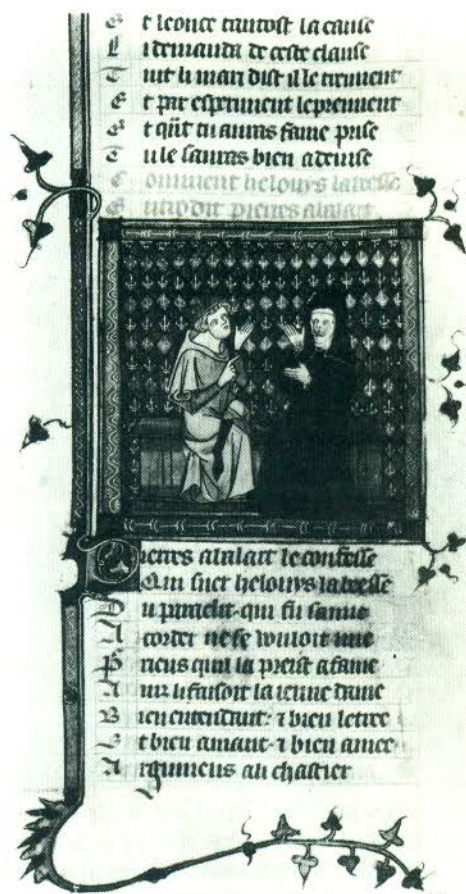 E t leonce tantost la cause
L i demanda de ceste clause
T uit li mari dist il le truevent
E t par esperiment le preuvent
E t qñt tu auras fame prise
T u le sauras bien a devise
C omment helouys labeesse
dit pierres abalart
P ierres abalart le confesse
Q ui suer helouys labeesse
D u paraclit qui fu samie
A corder ne se vouloit mie
P riens quil la preist a fame
A inz li faisoit la ienne dame
B ien entendant: ⁊ bien letree
E t bien amant ⁊ bien amee
A rgumens au chastier